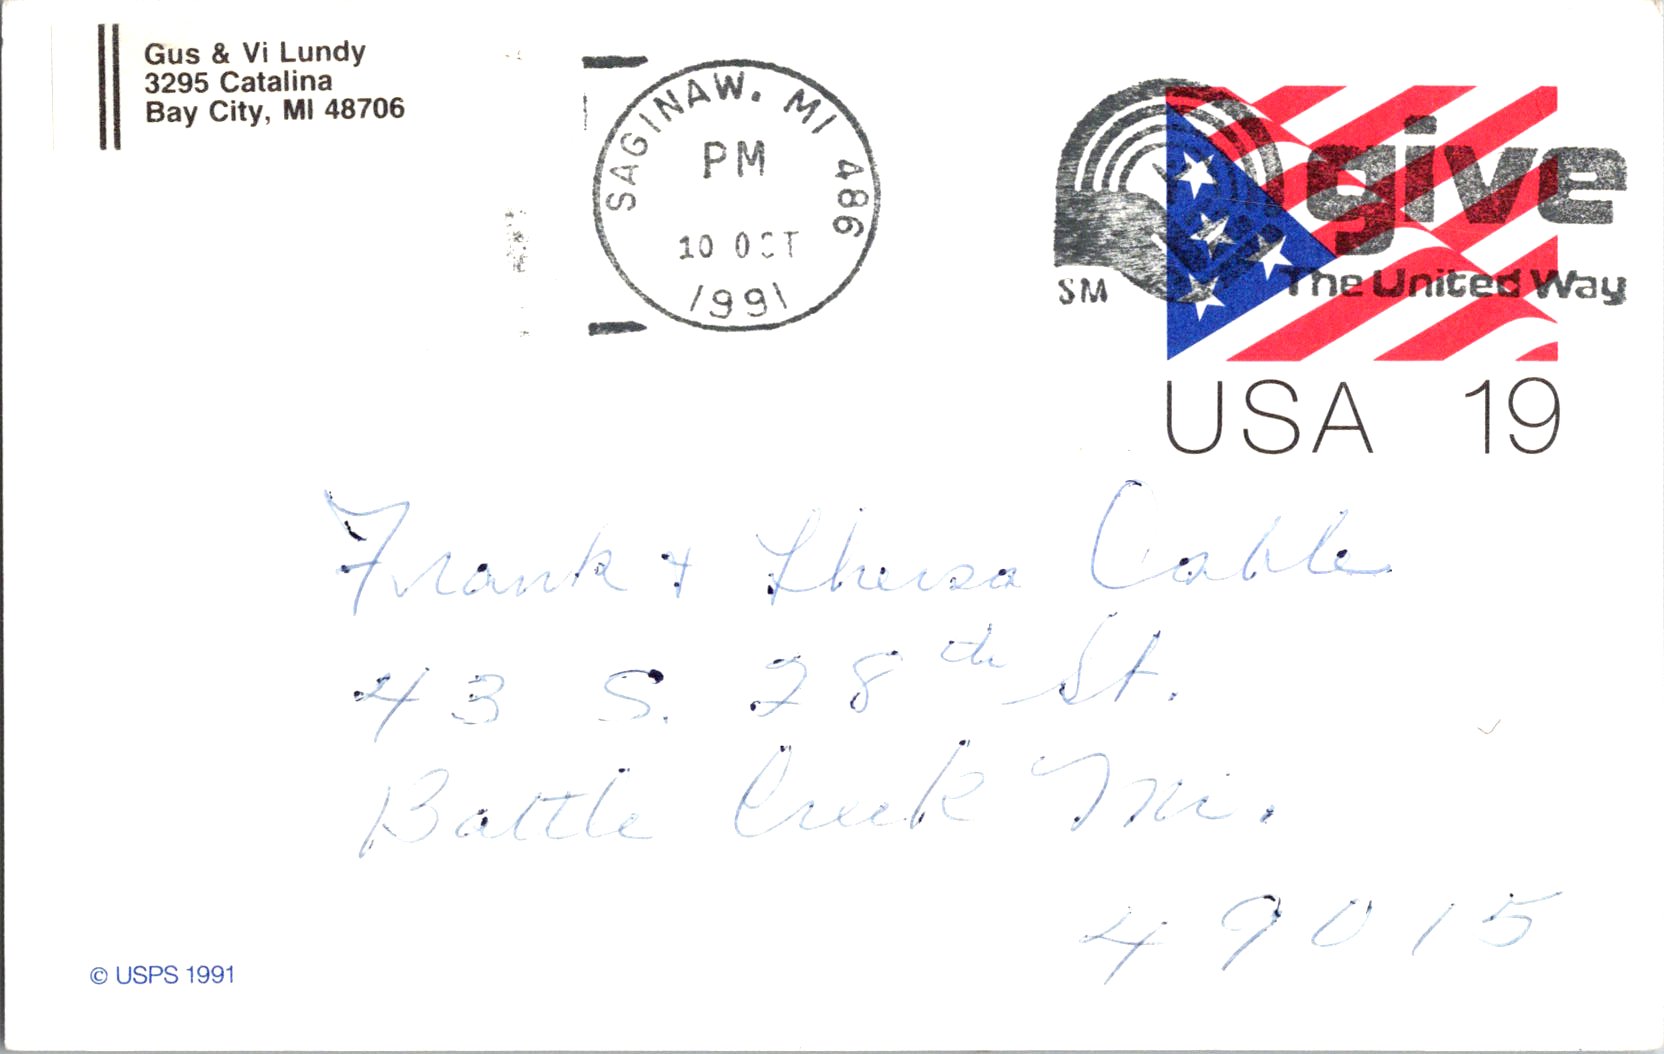 Gus & Vi Lundy
3295 Catalina
Bay City, MI 48706
SAGINAW. MI 486
PM
10 OCT
1991
give
SM
The United Way
USA 19
Frank + Theresa Cable
43 S. 28th St.
Battle Creek Mi.
49015
© USPS 1991